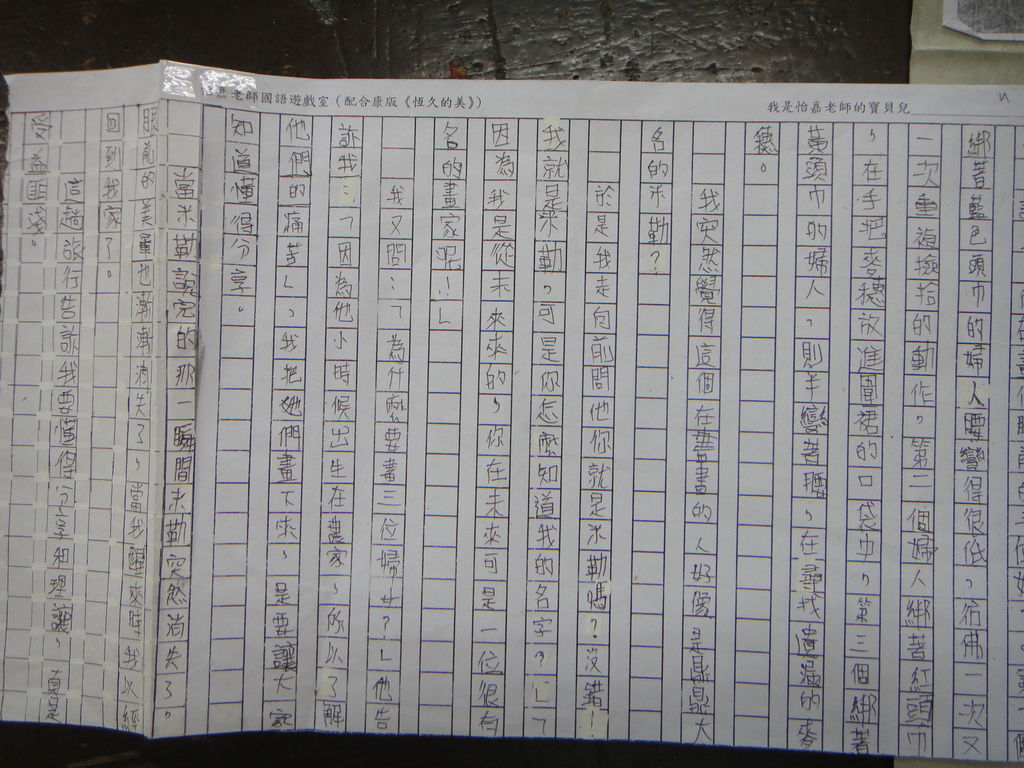 嘉老師國語遊戲室（配合康版《恆久的美》）
我是怡嘉老師的寶貝兒
綁著藍色頭巾的婦人腰彎得很低，彷彿一次又
一次重複撿拾的動作，第二個婦人綁著紅頭巾
，在手把麥穗放進圍裙的口袋中，第三個綁著
黃頭巾的婦人，則半彎著腰，在尋找遺漏的麥
穗。
我突然覺得這個在畫畫的人好像是鼎鼎大
名的米勒？
於是我走向前問他你就是米勒嗎？沒錯！
我就是米勒，可是你怎麼知道我的名字？」「
因為我是從未來來的，你在未來可是一位很有
名的畫家呢！」
我又問：「為什麼要畫三位婦女？」他告
訴我：「因為他小時候出生在農家，所以了解
他們的痛苦」，我把她們畫下來，是要讓大家
知道懂得分享。
當米勒說完的那一瞬間米勒突然消失了。
眼前的美景也漸漸消失了，當我醒來時我以經
回到我家了。
這趟旅行告訴我要懂得分享和理讓，真是
受益匪淺。